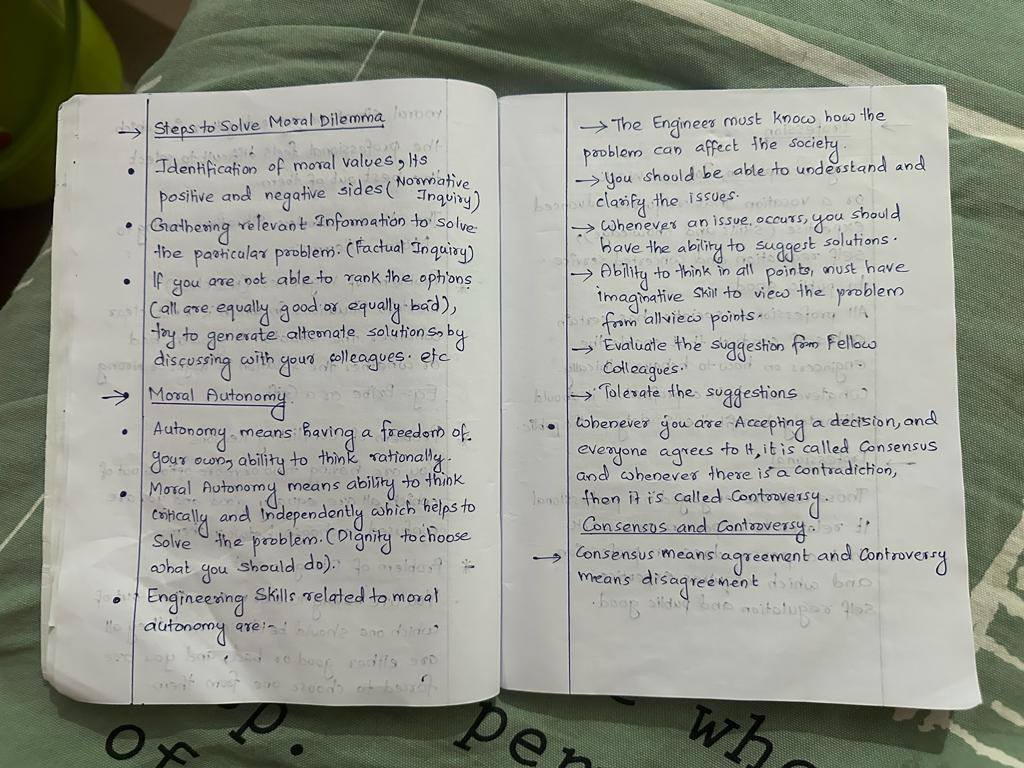 → Steps to Solve Moral Dilemma
• Identification of moral values, Its
positive and negative sides (Normative
Inquiry)
• Gathering relevant Information to Solve
the particular problem. (Factual Inquiry)
• If you are not able to rank the options
(all are equally good or equally bad),
try to generate alternate solutions, by
discussing with your colleagues. etc
→ Moral Autonomy.
• Autonomy means having a freedom of.
your own, ability to think rationally.
• Moral Autonomy means ability to think
critically and Independently which helps to
Solve the problem. (Dignity to choose
what you should do).
• Engineering Skills related to moral
autonomy are:-
→ The Engineer must know how the
problem can affect the society.
→ You should be able to understand and
clarify the issues.
→ Whenever an issue occurs, you should
have the ability to suggest solutions.
→ Ability to think in all points, must have
imaginative skill to view the problem
from all view points.
→ Evaluate the suggestion from Fellow
Colleagues.
→ Tolerate the suggestions
• Whenever you are Accepting a decision, and
everyone agrees to It, it is called Consensus
and whenever there is a contradiction,
then it is called Controversy.
Consensos and Controversy.
→ Consensus means agreement and Controversy
means disagreement
of
p.
per
whe